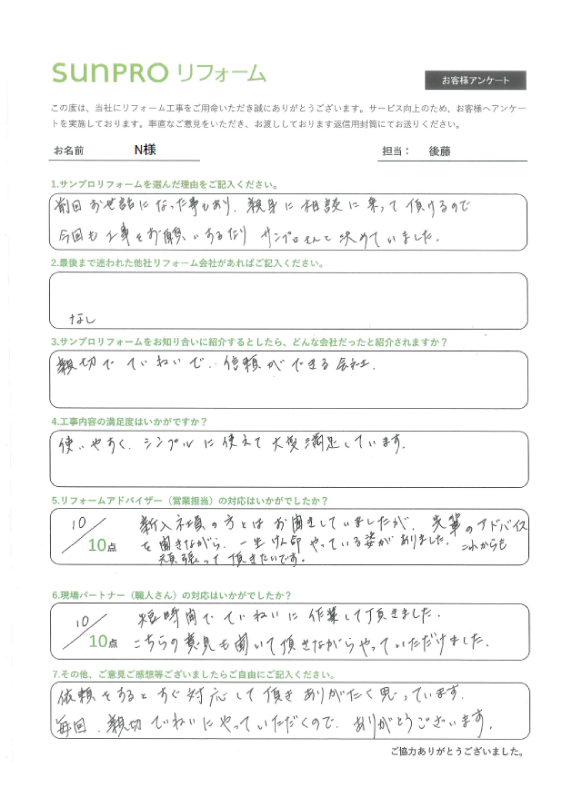 sunpro リフォーム
お客様アンケート
この度は、当社にリフォーム工事をご用命いただき誠にありがとうございます。サービス向上のため、お客様へアンケー
トを実施しております。率直なご意見をいただき、お渡ししております返信用封筒にてお送りください。
お名前 N様 担当： 後藤
1.サンプロリフォームを選んだ理由をご記入ください。
前回お世話になった事もあり、親身に相談に乗って頂けるので
今回も工事をお願いするなら サンプロさんと決めていました。
2.最後まで迷われた他社リフォーム会社があればご記入ください。
なし
3.サンプロリフォームをお知り合いに紹介するとしたら、どんな会社だったと紹介されますか？
親切でていねいで、信頼ができる会社。
4.工事内容の満足度はいかがですか？
使いやすく、シンプルに使えて大変満足しています。
5.リフォームアドバイザー（営業担当）の対応はいかがでしたか？
10/10点
新入社員の方とはお聞きしていましたが、先輩のアドバイス
を聞きながら、一生けん命やっている姿がありました。これからも
頑張って頂きたいです。
6.現場パートナー（職人さん）の対応はいかがでしたか？
10/10点
短時間でていねいに作業して頂きました。
こちらの意見も聞いて頂きながらやっていただけました。
7.その他、ご意見ご感想等ございましたらご自由にご記入ください。
依頼をするとすぐ対応して頂きありがたく思っています。
毎回、親切ていねいにやっていただくので、ありがとうございます。
ご協力ありがとうございました。